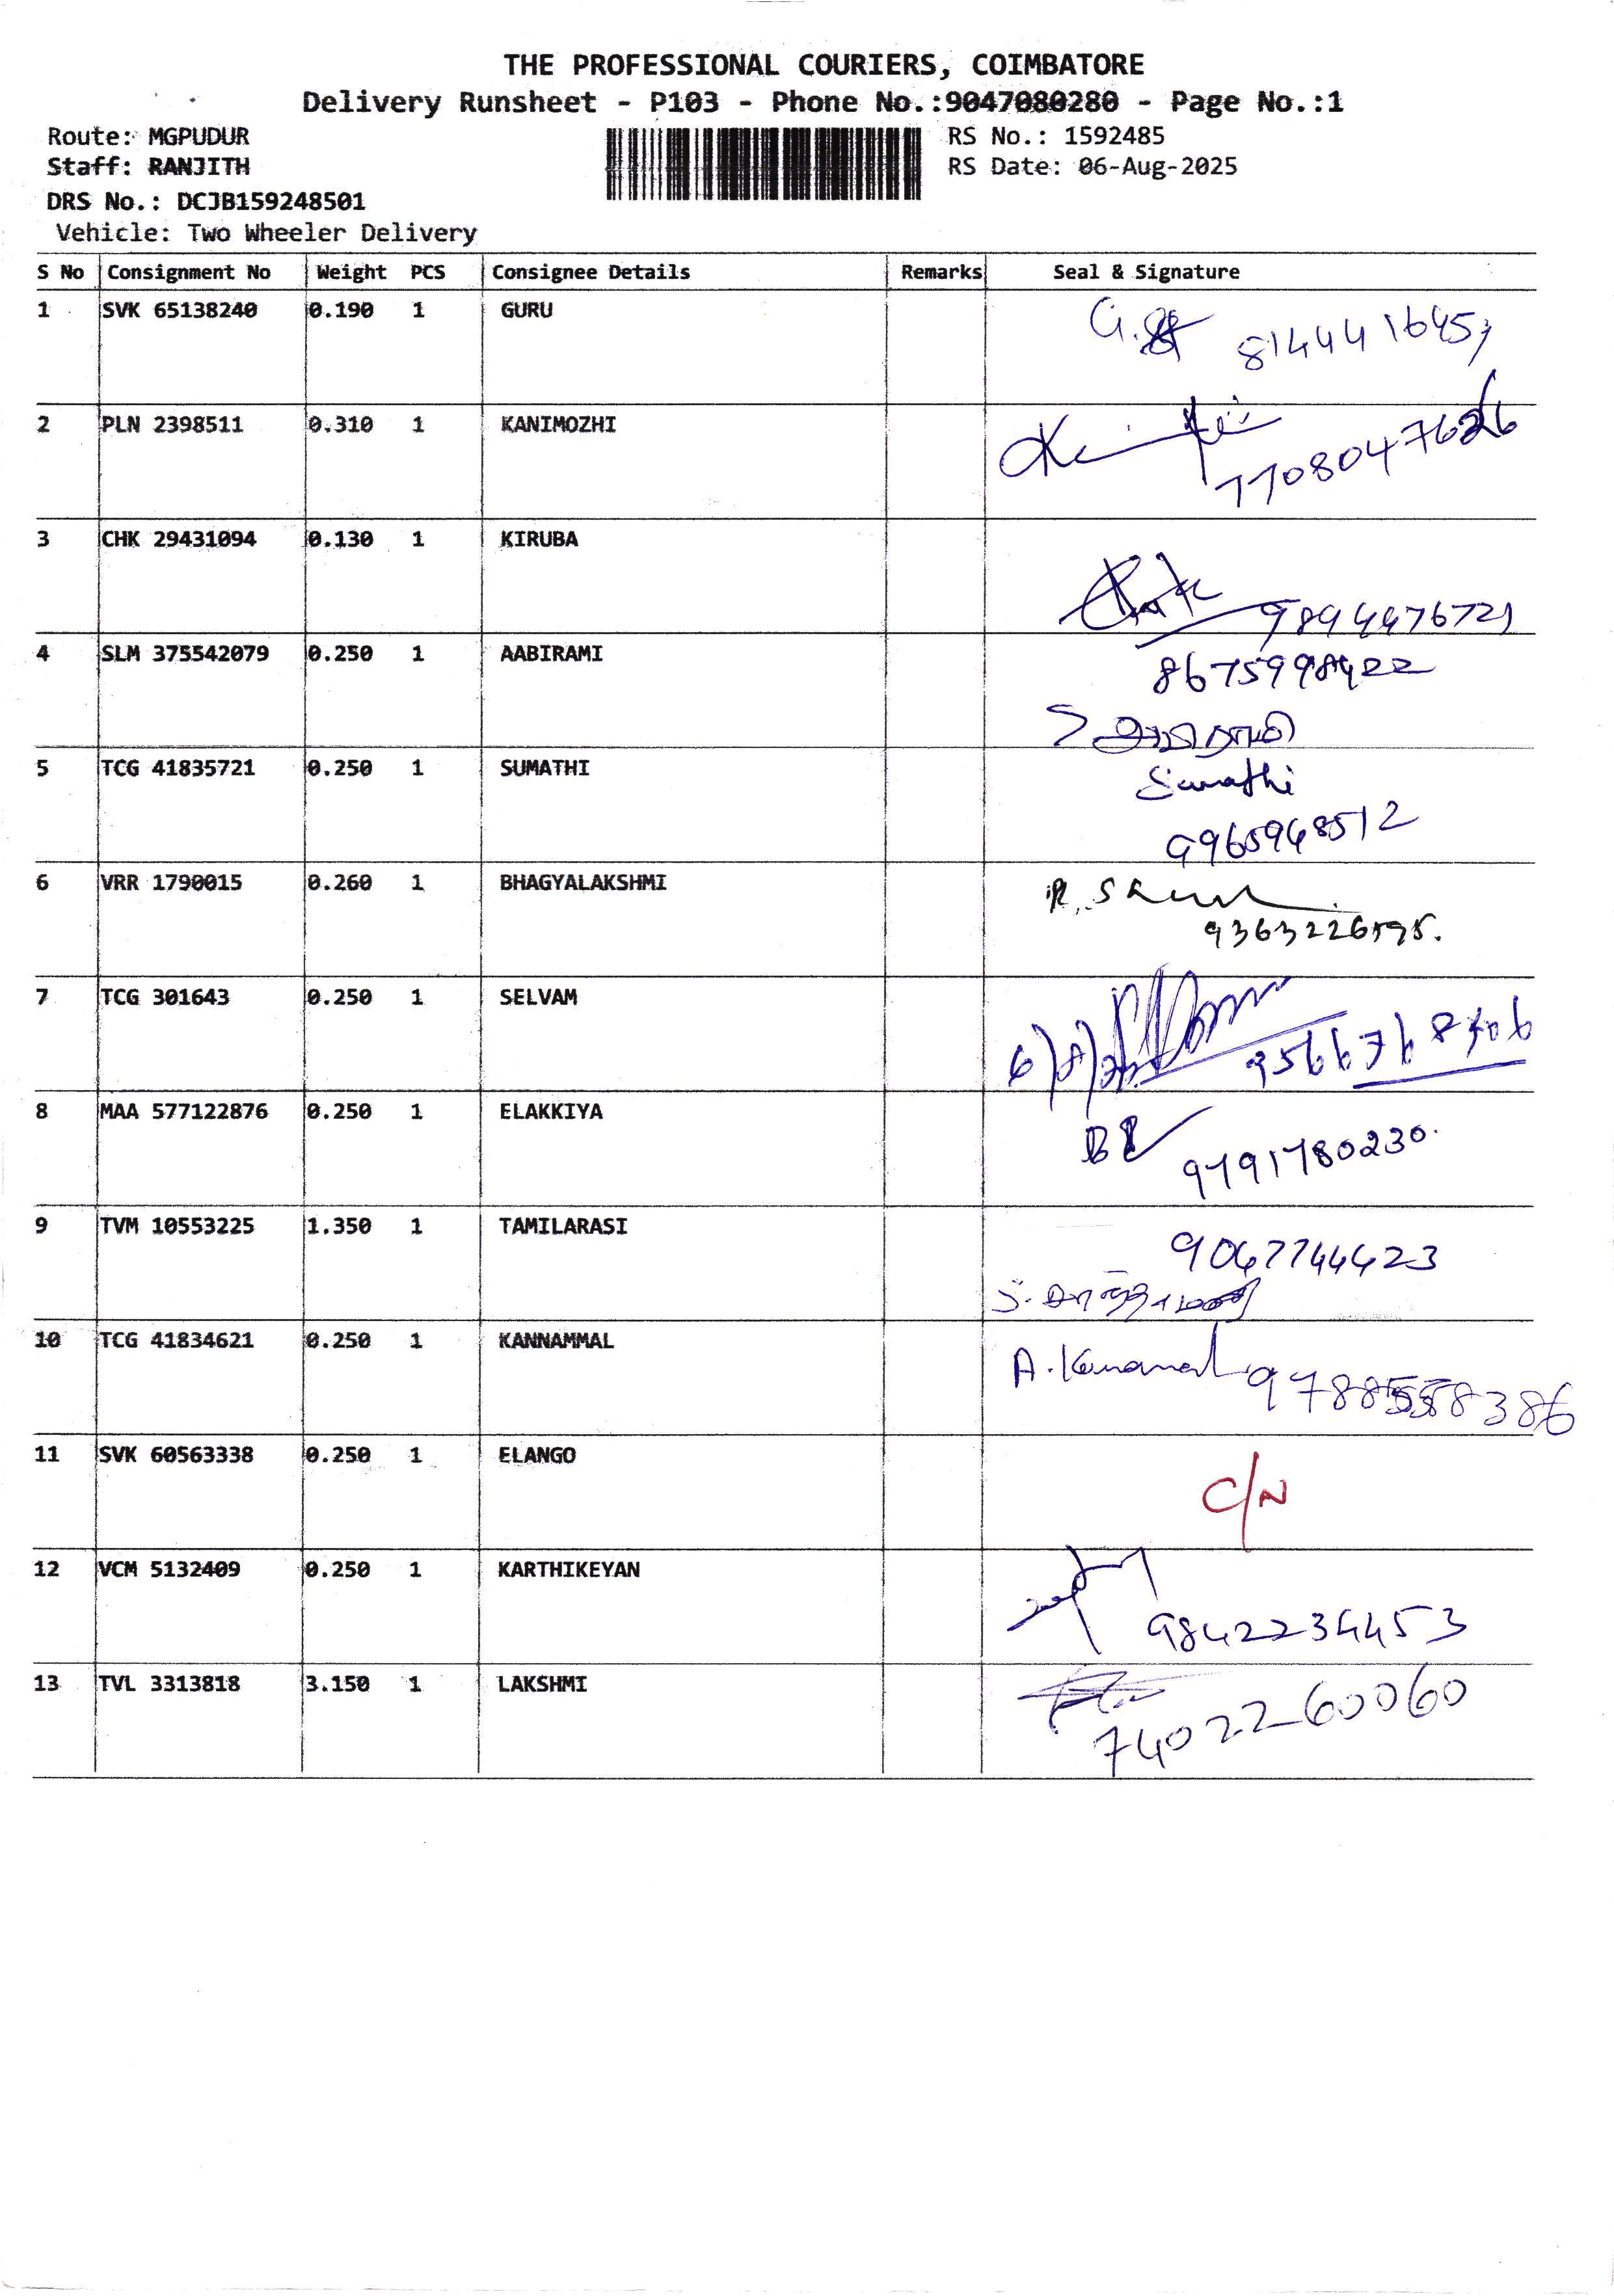 THE PROFESSIONAL COURIERS, COIMBATORE
Delivery Runsheet - P103 - Phone No.:9047080280 - Page No.:1
Route: MGPUDUR
RS No.: 1592485
Staff: RANJITH
RS Date: 06-Aug-2025
DRS No.: DCJB159248501
Vehicle: Two Wheeler Delivery
S No Consignment No Weight PCS Consignee Details Remarks Seal & Signature
1 SVK 65138240 0.190 1 GURU
2 PLN 2398511 0.310 1 KANIMOZHI
3 CHK 29431094 0.130 1 KIRUBA
4 SLM 375542079 0.250 1 AABIRAMI
8675998422
5 TCG 41835721 0.250 1 SUMATHI
Sumathi
9965948512
6 VRR 1790015 0.260 1 BHAGYALAKSHMI
7 TCG 301643 0.250 1 SELVAM
8 MAA 577122876 0.250 1 ELAKKIYA
9791780230.
9 TVM 10553225 1.350 1 TAMILARASI
9047744423
10 TCG 41834621 0.250 1 KANNAMMAL
11 SVK 60563338 0.250 1 ELANGO
C/N
12 VCM 5132409 0.250 1 KARTHIKEYAN
9842234453
13 TVL 3313818 3.150 1 LAKSHMI
7402260060